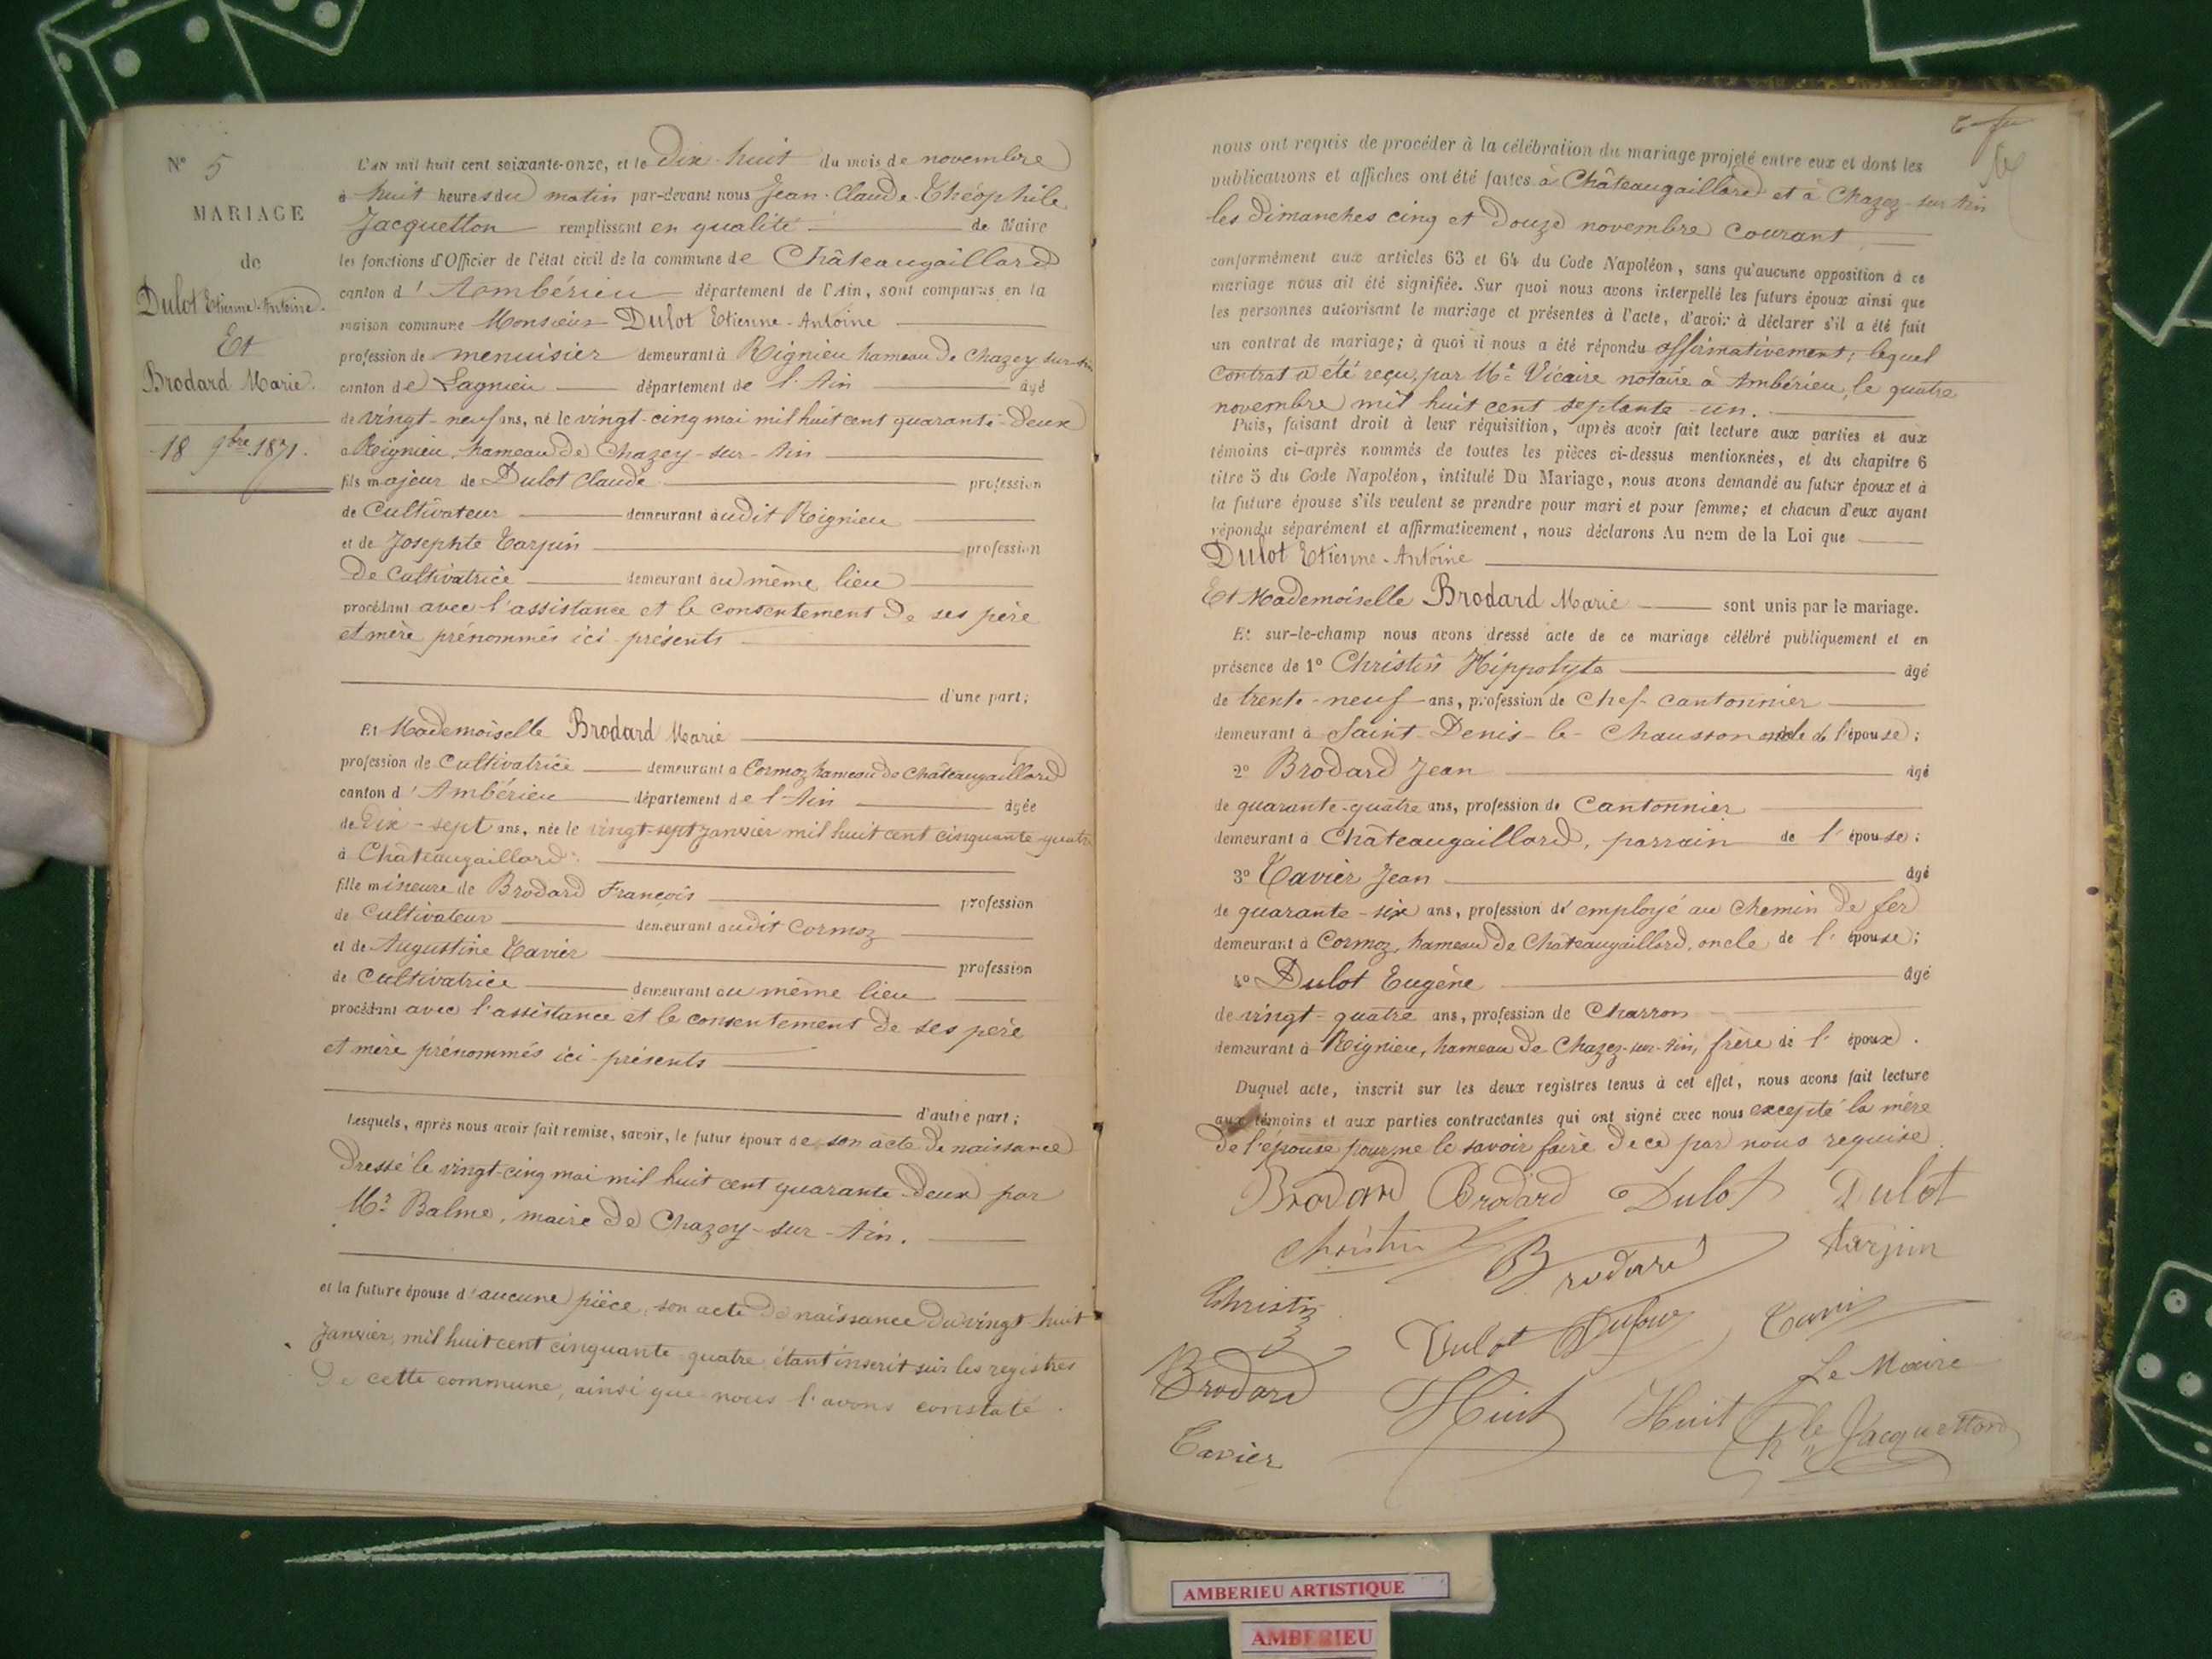 N° 5
MARIAGE
de
Dulot Etienne-Antoine.
Et
Brodard Marie.
18 9bre 1871.
L'AN mil huit cent soixante-onze, et le Dix-huit du mois de novembre
à huit heures du matin par-devant nous Jean-Claude-Théophile
Jacquetton remplissant en qualité de Maire
les fonctions d'Officier de l'état civil de la commune de Châteaugaillard
canton d'Ambérieu département de l'Ain, sont comparus en la
maison commune Monsieur Dulot Etienne-Antoine
profession de menuisier demeurant à Rignieu hameau de Chazey sur-Ain
canton de Lagnieu département de l'Ain âgé
de vingt-neuf ans, né le vingt-cinq mai mil huit cent quarante-deux
à Reignieu, hameau de Chazey-sur-Ain
fils majeur de Dulot Claude profession
de Cultivateur demeurant audit Reignieu
et de Josephte Tarjin profession
de Cultivatrice demeurant au même lieu
procédant avec l'assistance et le consentement de ses père
et mère prénommés ici-présents
d'une part;
Et Mademoiselle Brodard Marie
profession de Cultivatrice demeurant à Cormoz hameau de Châteaugaillard
canton d'Ambérieu département de l'Ain âgée
de dix-sept ans, née le vingt-sept janvier mil huit cent cinquante-quatre
à Châteaugaillard
fille mineure de Brodard François profession
de Cultivateur demeurant audit Cormoz
et de Augustine Tavier profession
de Cultivatrice demeurant au même lieu
procédant avec l'assistance et le consentement de ses père
et mère prénommés ici-présents
d'autre part;
Lesquels, après nous avoir fait remise, savoir, le futur époux de son acte de naissance
dressé le vingt-cinq mai mil huit cent quarante-deux par
Mr Balme, maire de Chazey-sur-Ain.
et la future épouse d'aucune pièce, son acte de naissance du vingt-huit
janvier mil huit cent cinquante-quatre étant inscrit sur les registres
de cette commune, ainsi que nous l'avons constaté.
nous ont requis de procéder à la célébration du mariage projeté entre eux et dont les
publications et affiches ont été faites à Châteaugaillard et à Chazey-sur-Ain
les dimanches cinq et douze novembre courant
conformément aux articles 63 et 64 du Code Napoléon, sans qu'aucune opposition à ce
mariage nous ait été signifiée. Sur quoi nous avons interpellé les futurs époux ainsi que
les personnes autorisant le mariage et présentes à l'acte, d'avoir à déclarer s'il a été fait
un contrat de mariage; à quoi il nous a été répondu affirmativement; lequel
contrat a été reçu par Me Vicaire notaire à Ambérieu, le quatre
novembre mil huit cent septante-un.
Puis, faisant droit à leur réquisition, après avoir fait lecture aux parties et aux
témoins ci-après nommés de toutes les pièces ci-dessus mentionnées, et du chapitre 6
titre 5 du Code Napoléon, intitulé Du Mariage, nous avons demandé au futur époux et à
la future épouse s'ils veulent se prendre pour mari et pour femme; et chacun d'eux ayant
répondu séparément et affirmativement, nous déclarons Au nom de la Loi que
Dulot Etienne-Antoine
Et Mademoiselle Brodard Marie sont unis par le mariage.
Et sur-le-champ nous avons dressé acte de ce mariage célébré publiquement et en
présence de 1° Christin Hippolyte âgé
de trente-neuf ans, profession de Chef-cantonnier
demeurant à Saint-Denis-le-Chausson oncle de l'épouse;
2° Brodard Jean âgé
de quarante-quatre ans, profession de Cantonnier
demeurant à Châteaugaillard, parrain de l'épouse;
3° Tavier Jean âgé
de quarante-six ans, profession d'employé au chemin de fer
demeurant à Cormoz, hameau de Châteaugaillard, oncle de l'épouse;
4° Dulot Eugène âgé
de vingt-quatre ans, profession de Charron
demeurant à Reignieu, hameau de Chazey-sur-Ain, frère de l'époux.
Duquel acte, inscrit sur les deux registres tenus à cet effet, nous avons fait lecture
aux témoins et aux parties contractantes qui ont signé avec nous excepté la mère
de l'épouse pour ne le savoir faire de ce par nous requise.
Brodard Brodard Dulot Dulot
Christin Brodard Tarjin
Christin
Dulot Dufour Tavier
Brodard Huit Huit Le Maire
Tavier Jacquetton
AMBERIEU ARTISTIQUE
AMBERIEU